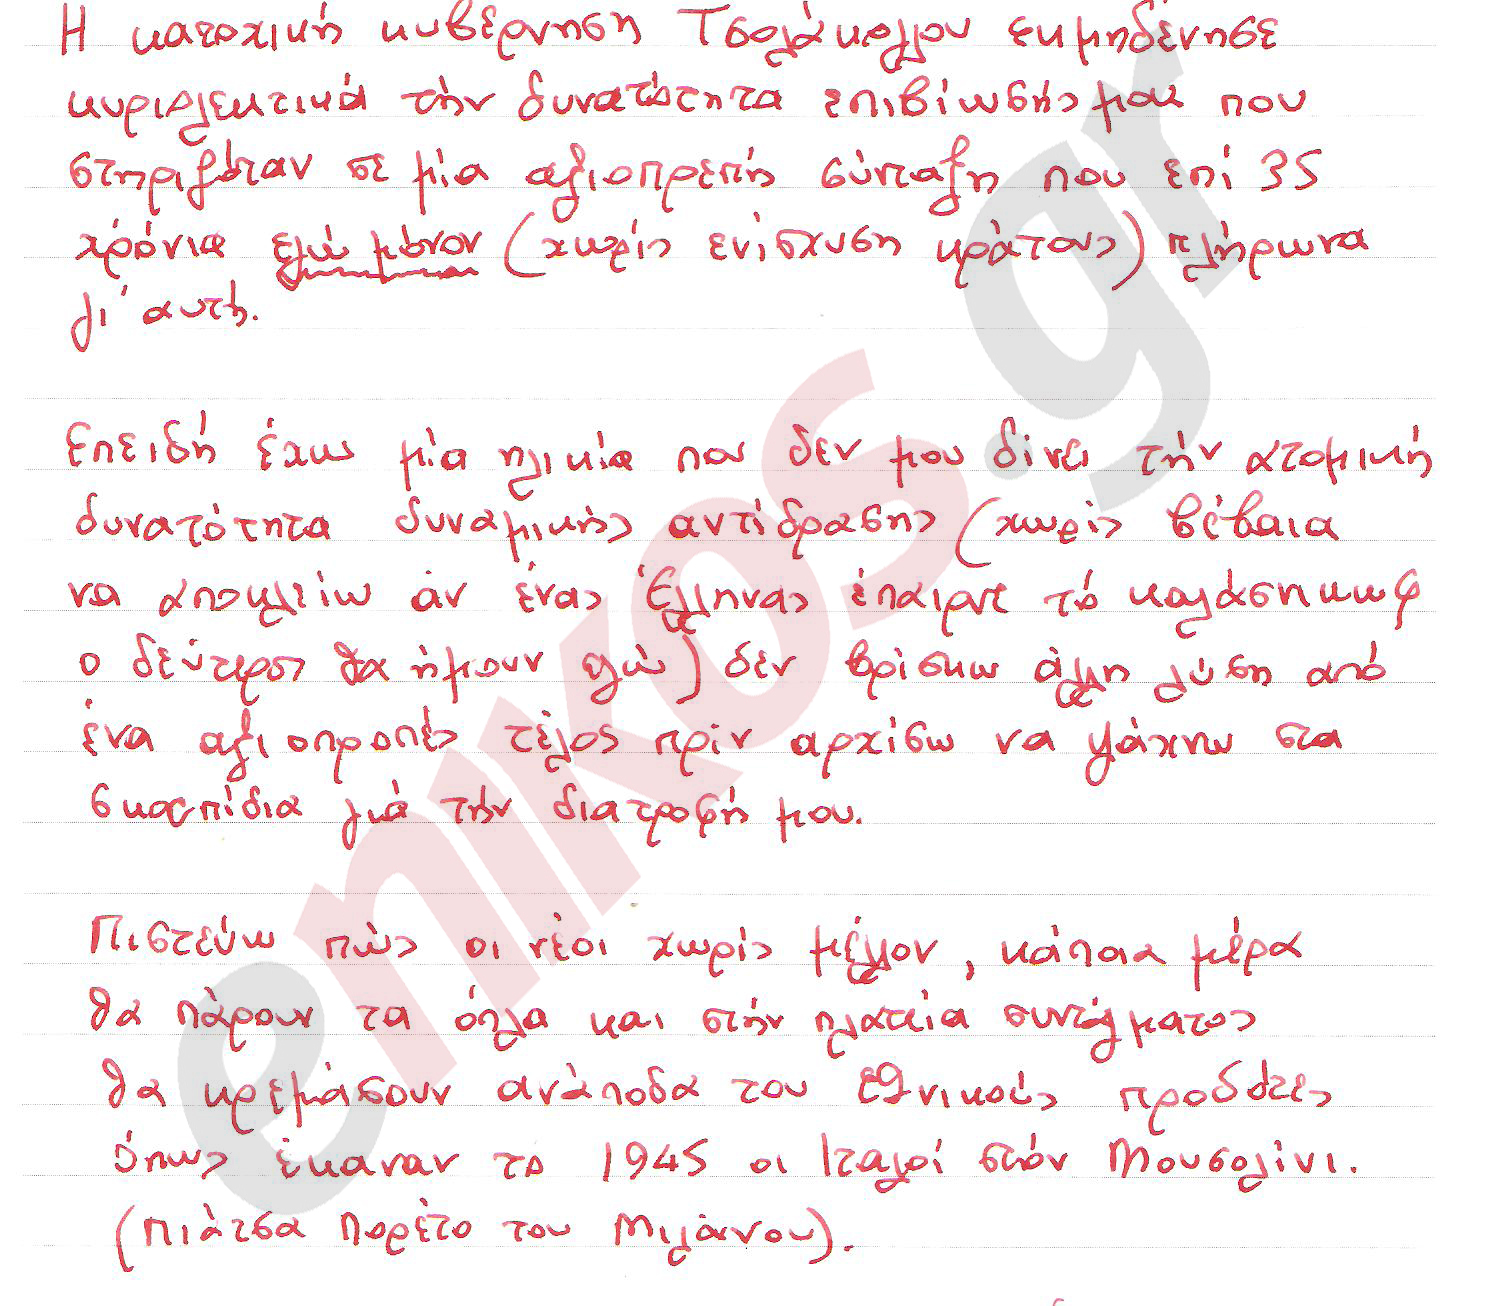 Η κατοχική κυβέρνηση Τσολάκογλου εκμηδένησε
κυριολεκτικά την δυνατότητα επιβίωσής μου που
στηριζόταν σε μία αξιοπρεπή σύνταξη που επί 35
χρόνια εγώ μόνον (χωρίς ενίσχυση κράτους) πλήρωνα
γι' αυτή.
Επειδή έχω μία ηλικία που δεν μου δίνει την ατομική
δυνατότητα δυναμικής αντίδρασης (χωρίς βέβαια
να αποκλείω άν ένας Έλληνας έπαιρνε τό καλάσνηκωφ
ο δεύτερος θα ήμουν εγώ) δεν βρίσκω άλλη λύση από
ένα αξιοπρεπές τέλος πρίν αρχίσω να ψάχνω στα
σκουπίδια γιά τήν διατροφή μου.
Πιστεύω πώς οι νέοι χωρίς μέλλον, κάποια μέρα
θα πάρουν τα όπλα και στήν πλατεία συντάγματος
θα κρεμάσουν ανάποδα του εθνικούς προδότες
όπως έκαναν το 1945 οι Ιταλοί στόν Μουσολίνι.
(Πιάτσα Πορέτο του Μιλάνου).
enikos.gr